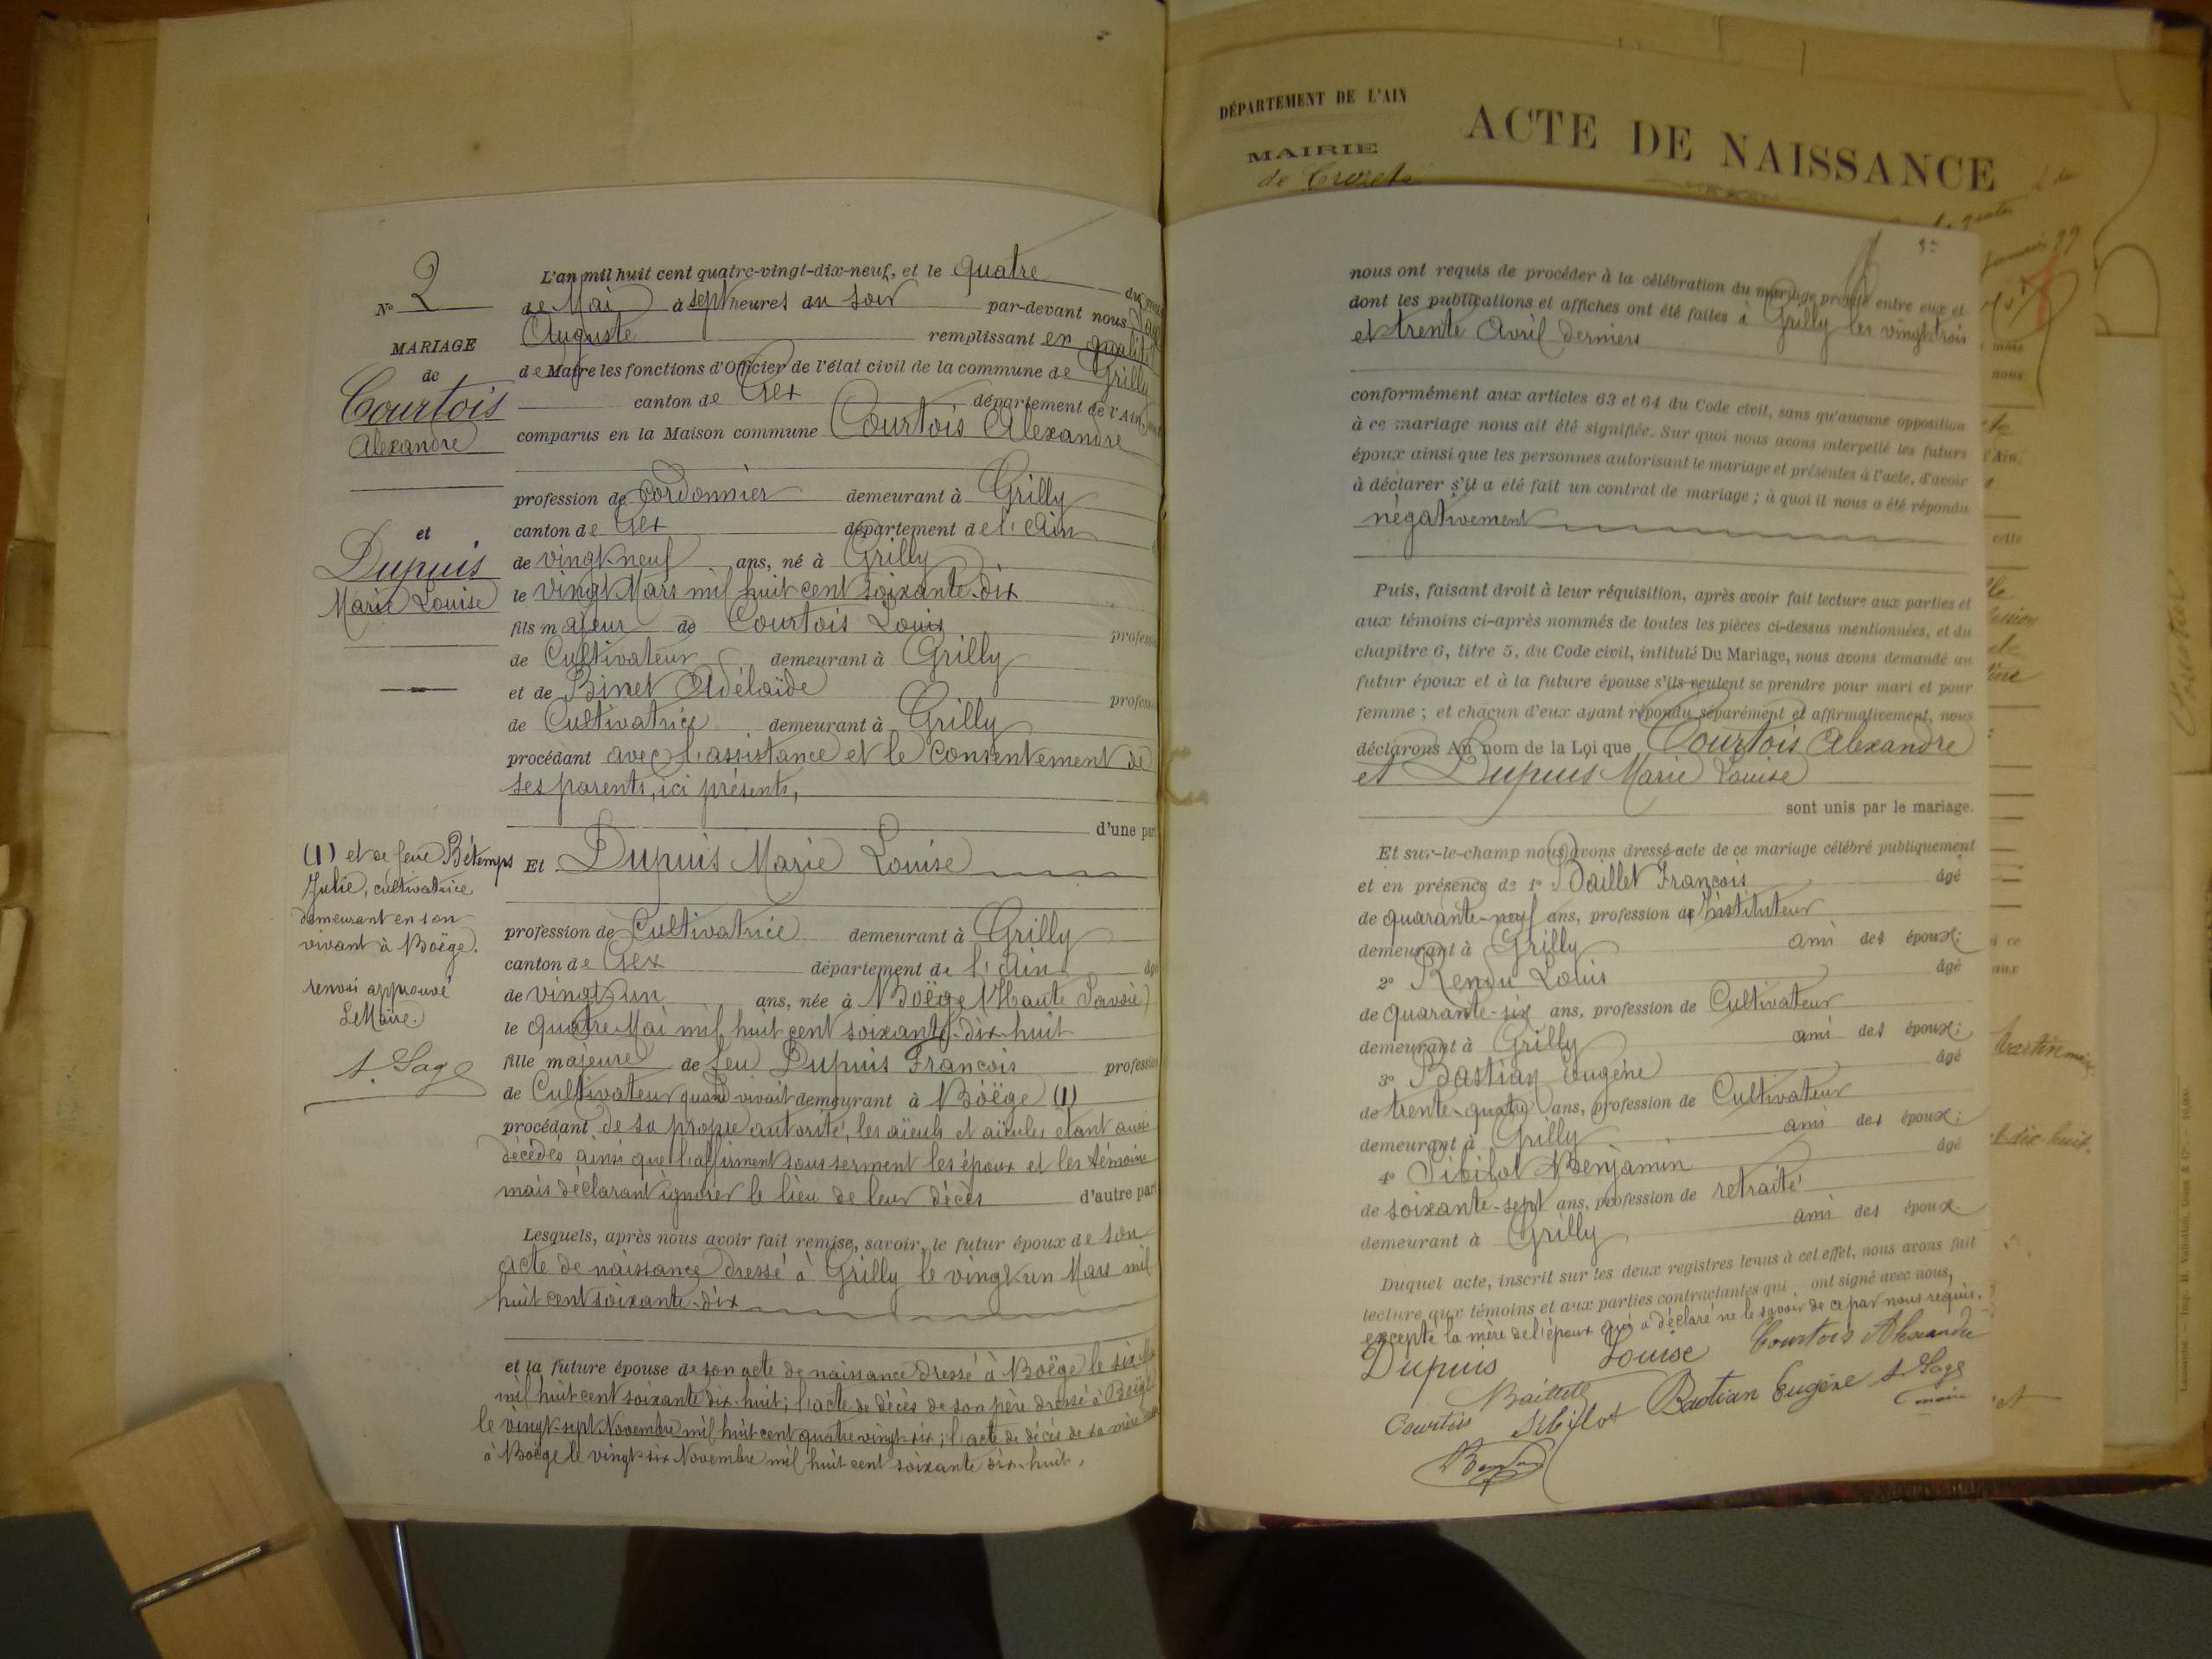 N° 2
MARIAGE
de
Courtois
Alexandre
et
Dupuis
Marie Louise
(1) et de feue Bétemps
Julie, cultivatrice
demeurant en son
vivant à Boëge.
renvoi approuvé
Le Maire.
A. Sage
L'an mil huit cent quatre-vingt-dix-neuf, et le quatre du mois
de Mai à sept heures du soir par-devant nous Sage
Auguste remplissant en qualité
de Maire les fonctions d'Officier de l'état civil de la commune de Grilly
canton de Gex département de l'Ain,
comparus en la Maison commune Courtois Alexandre
profession de cordonnier demeurant à Grilly
canton de Gex département de l'Ain
de vingt-neuf ans, né à Grilly
le vingt Mars mil huit cent soixante-dix
fils majeur de Courtois Louis profession
de Cultivateur demeurant à Grilly
et de Binet Adélaïde profession
de Cultivatrice demeurant à Grilly
procédant avec l'assistance et le consentement de
ses parents, ici présents,
d'une part
Et Dupuis Marie Louise
profession de Cultivatrice demeurant à Grilly
canton de Gex département de l'Ain âgé
de vingt-un ans, née à Boëge (Haute Savoie)
le quatre Mai mil huit cent soixante-dix-huit
fille majeure de feu Dupuis François profession
de Cultivateur quand vivait demeurant à Boëge (1)
procédant de sa propre autorité, les aïeuls et aïeules étant aussi
décédés ainsi que l'affirment sous serment les époux et les témoins
mais déclarant ignorer le lieu de leur décès d'autre part
Lesquels, après nous avoir fait remise, savoir, le futur époux de son
acte de naissance dressé à Grilly le vingt-un Mars mil
huit cent soixante-dix
et la future épouse de son acte de naissance dressé à Boëge le six Mai
mil huit cent soixante dix-huit; l'acte de décès de son père dressé à Boëge
le vingt-sept Novembre mil huit cent quatre vingt-six; l'acte de décès de sa mère
à Boëge le vingt-six Novembre mil huit cent soixante dix-huit.
DÉPARTEMENT DE L'AIN
MAIRIE
de Crozet
ACTE DE NAISSANCE
nous ont requis de procéder à la célébration du mariage projeté entre eux et
dont les publications et affiches ont été faites à Grilly les vingt-trois
et trente Avril derniers
conformément aux articles 63 et 64 du Code civil, sans qu'aucune opposition
à ce mariage nous ait été signifiée. Sur quoi nous avons interpellé les futurs
époux ainsi que les personnes autorisant le mariage et présentes à l'acte, d'avoir
à déclarer s'il a été fait un contrat de mariage; à quoi il nous a été répondu
négativement
Puis, faisant droit à leur réquisition, après avoir fait lecture aux parties et
aux témoins ci-après nommés de toutes les pièces ci-dessus mentionnées, et du
chapitre 6, titre 5, du Code civil, intitulé Du Mariage, nous avons demandé au
futur époux et à la future épouse s'ils veulent se prendre pour mari et pour
femme; et chacun d'eux ayant répondu séparément et affirmativement, nous
déclarons Au nom de la Loi que Courtois Alexandre
et Dupuis Marie Louise
sont unis par le mariage.
Et sur-le-champ nous avons dressé acte de ce mariage célébré publiquement
et en présence de 1° Baillet François âgé
de quarante-neuf ans, profession de Instituteur
demeurant à Grilly ami des époux;
2° Rendu Louis âgé
de quarante-six ans, profession de Cultivateur
demeurant à Grilly ami des époux;
3° Bastian Eugène âgé
de trente-quatre ans, profession de Cultivateur
demeurant à Grilly ami des époux;
4° Sibilot Benjamin âgé
de soixante-sept ans, profession de retraité
demeurant à Grilly ami des époux.
Duquel acte, inscrit sur les deux registres tenus à cet effet, nous avons fait
lecture aux témoins et aux parties contractantes qui ont signé avec nous,
excepté la mère de l'époux qui a déclaré ne le savoir de ce par nous requis.
Dupuis Louise Courtois Alexandre
Baillet Bastian Eugène A. Sage
Courtois Sibillot maire